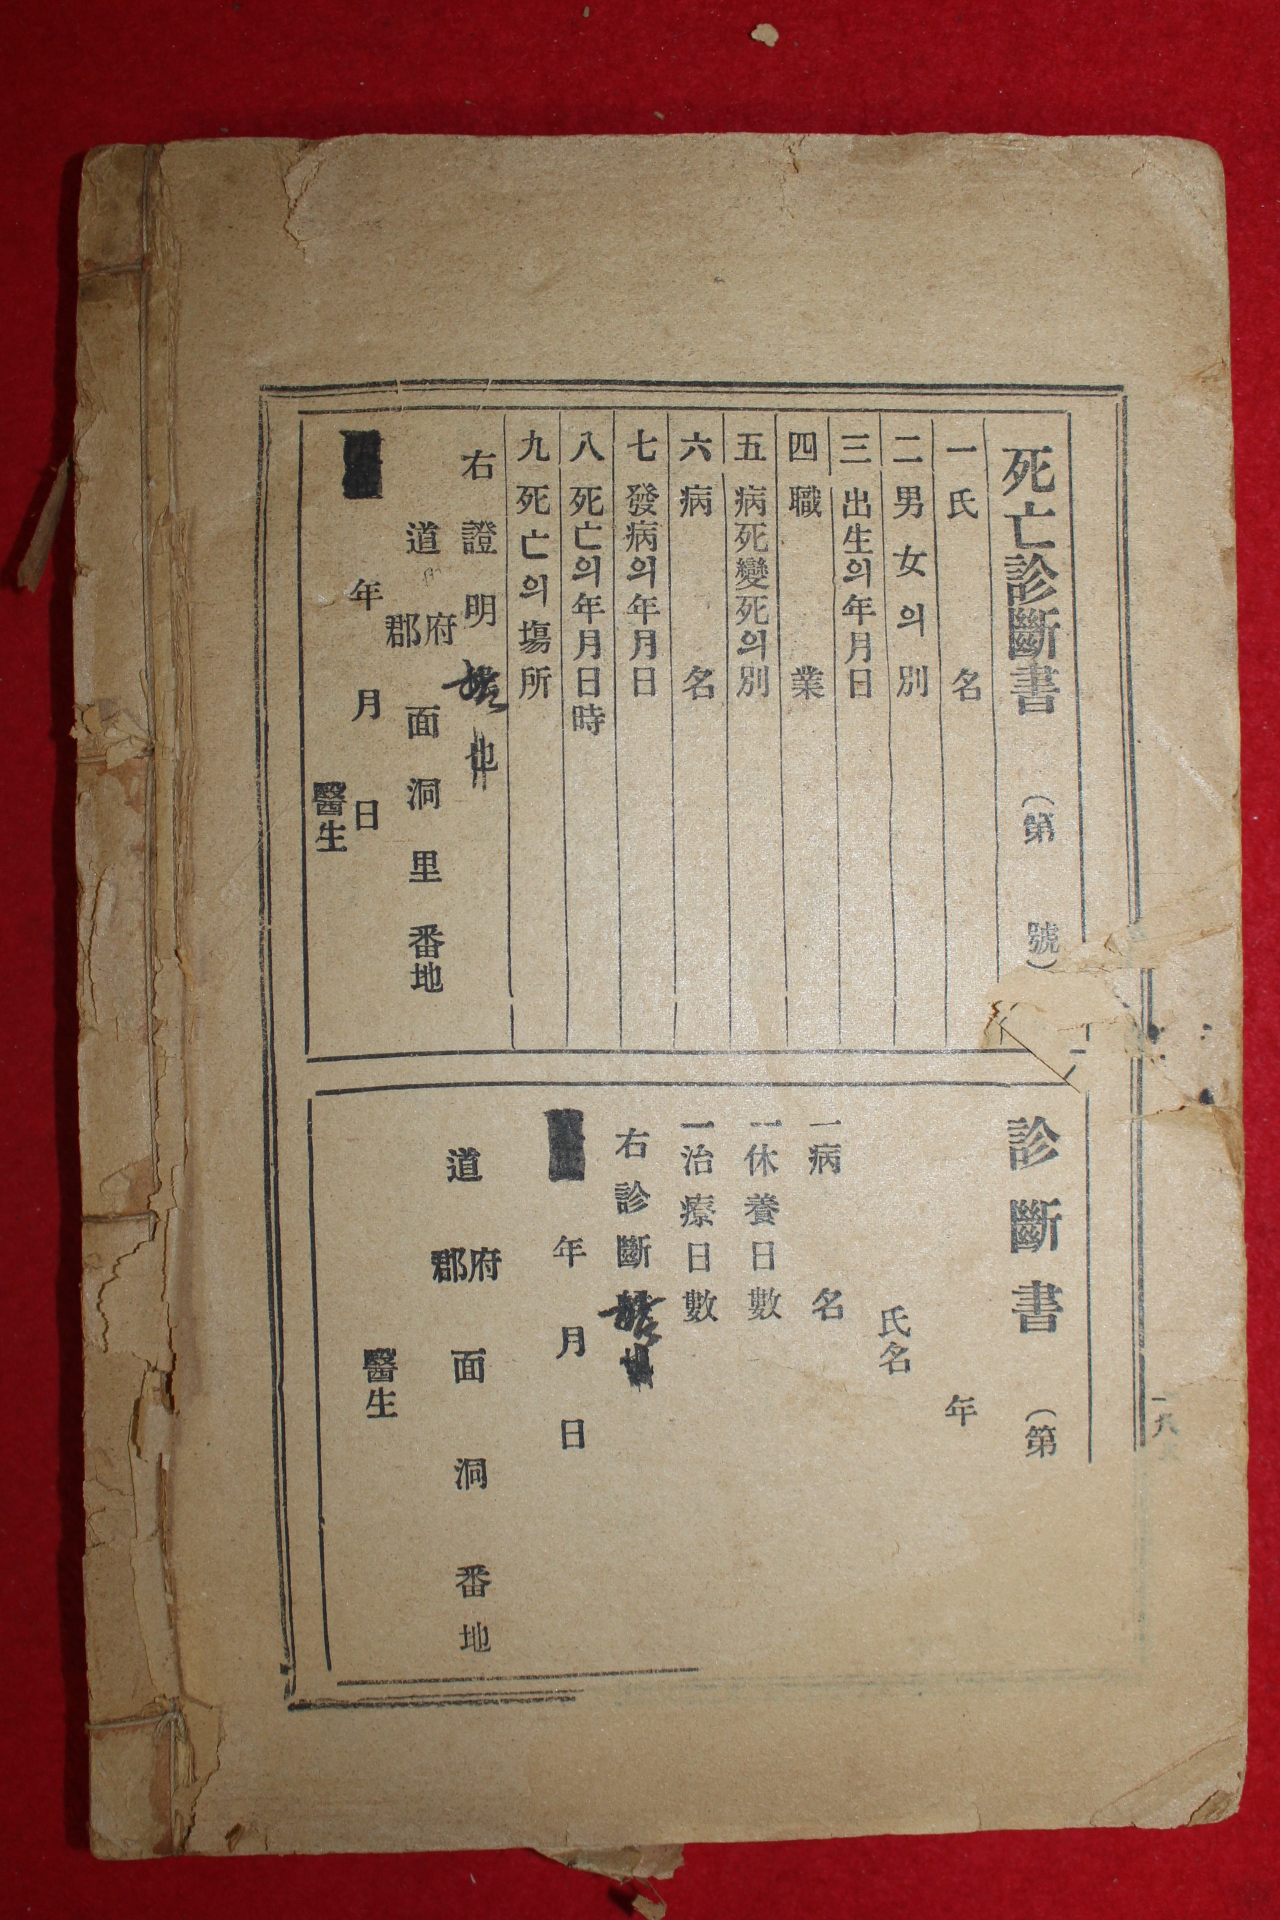 死亡診斷書 (第 號)
一 氏 名
二 男女의別
三 出生의年月日
四 職 業
五 病死變死의別
六 病 名
七 發病의年月日
八 死亡의年月日時
九 死亡의場所
右證明 也
道 郡府 面洞里番地
年 月 日
醫生
診斷書 (第
年
氏名
一病 名
一休養日數
一治療日數
右診斷
年月日
道 郡府 面洞番地
醫生
一八